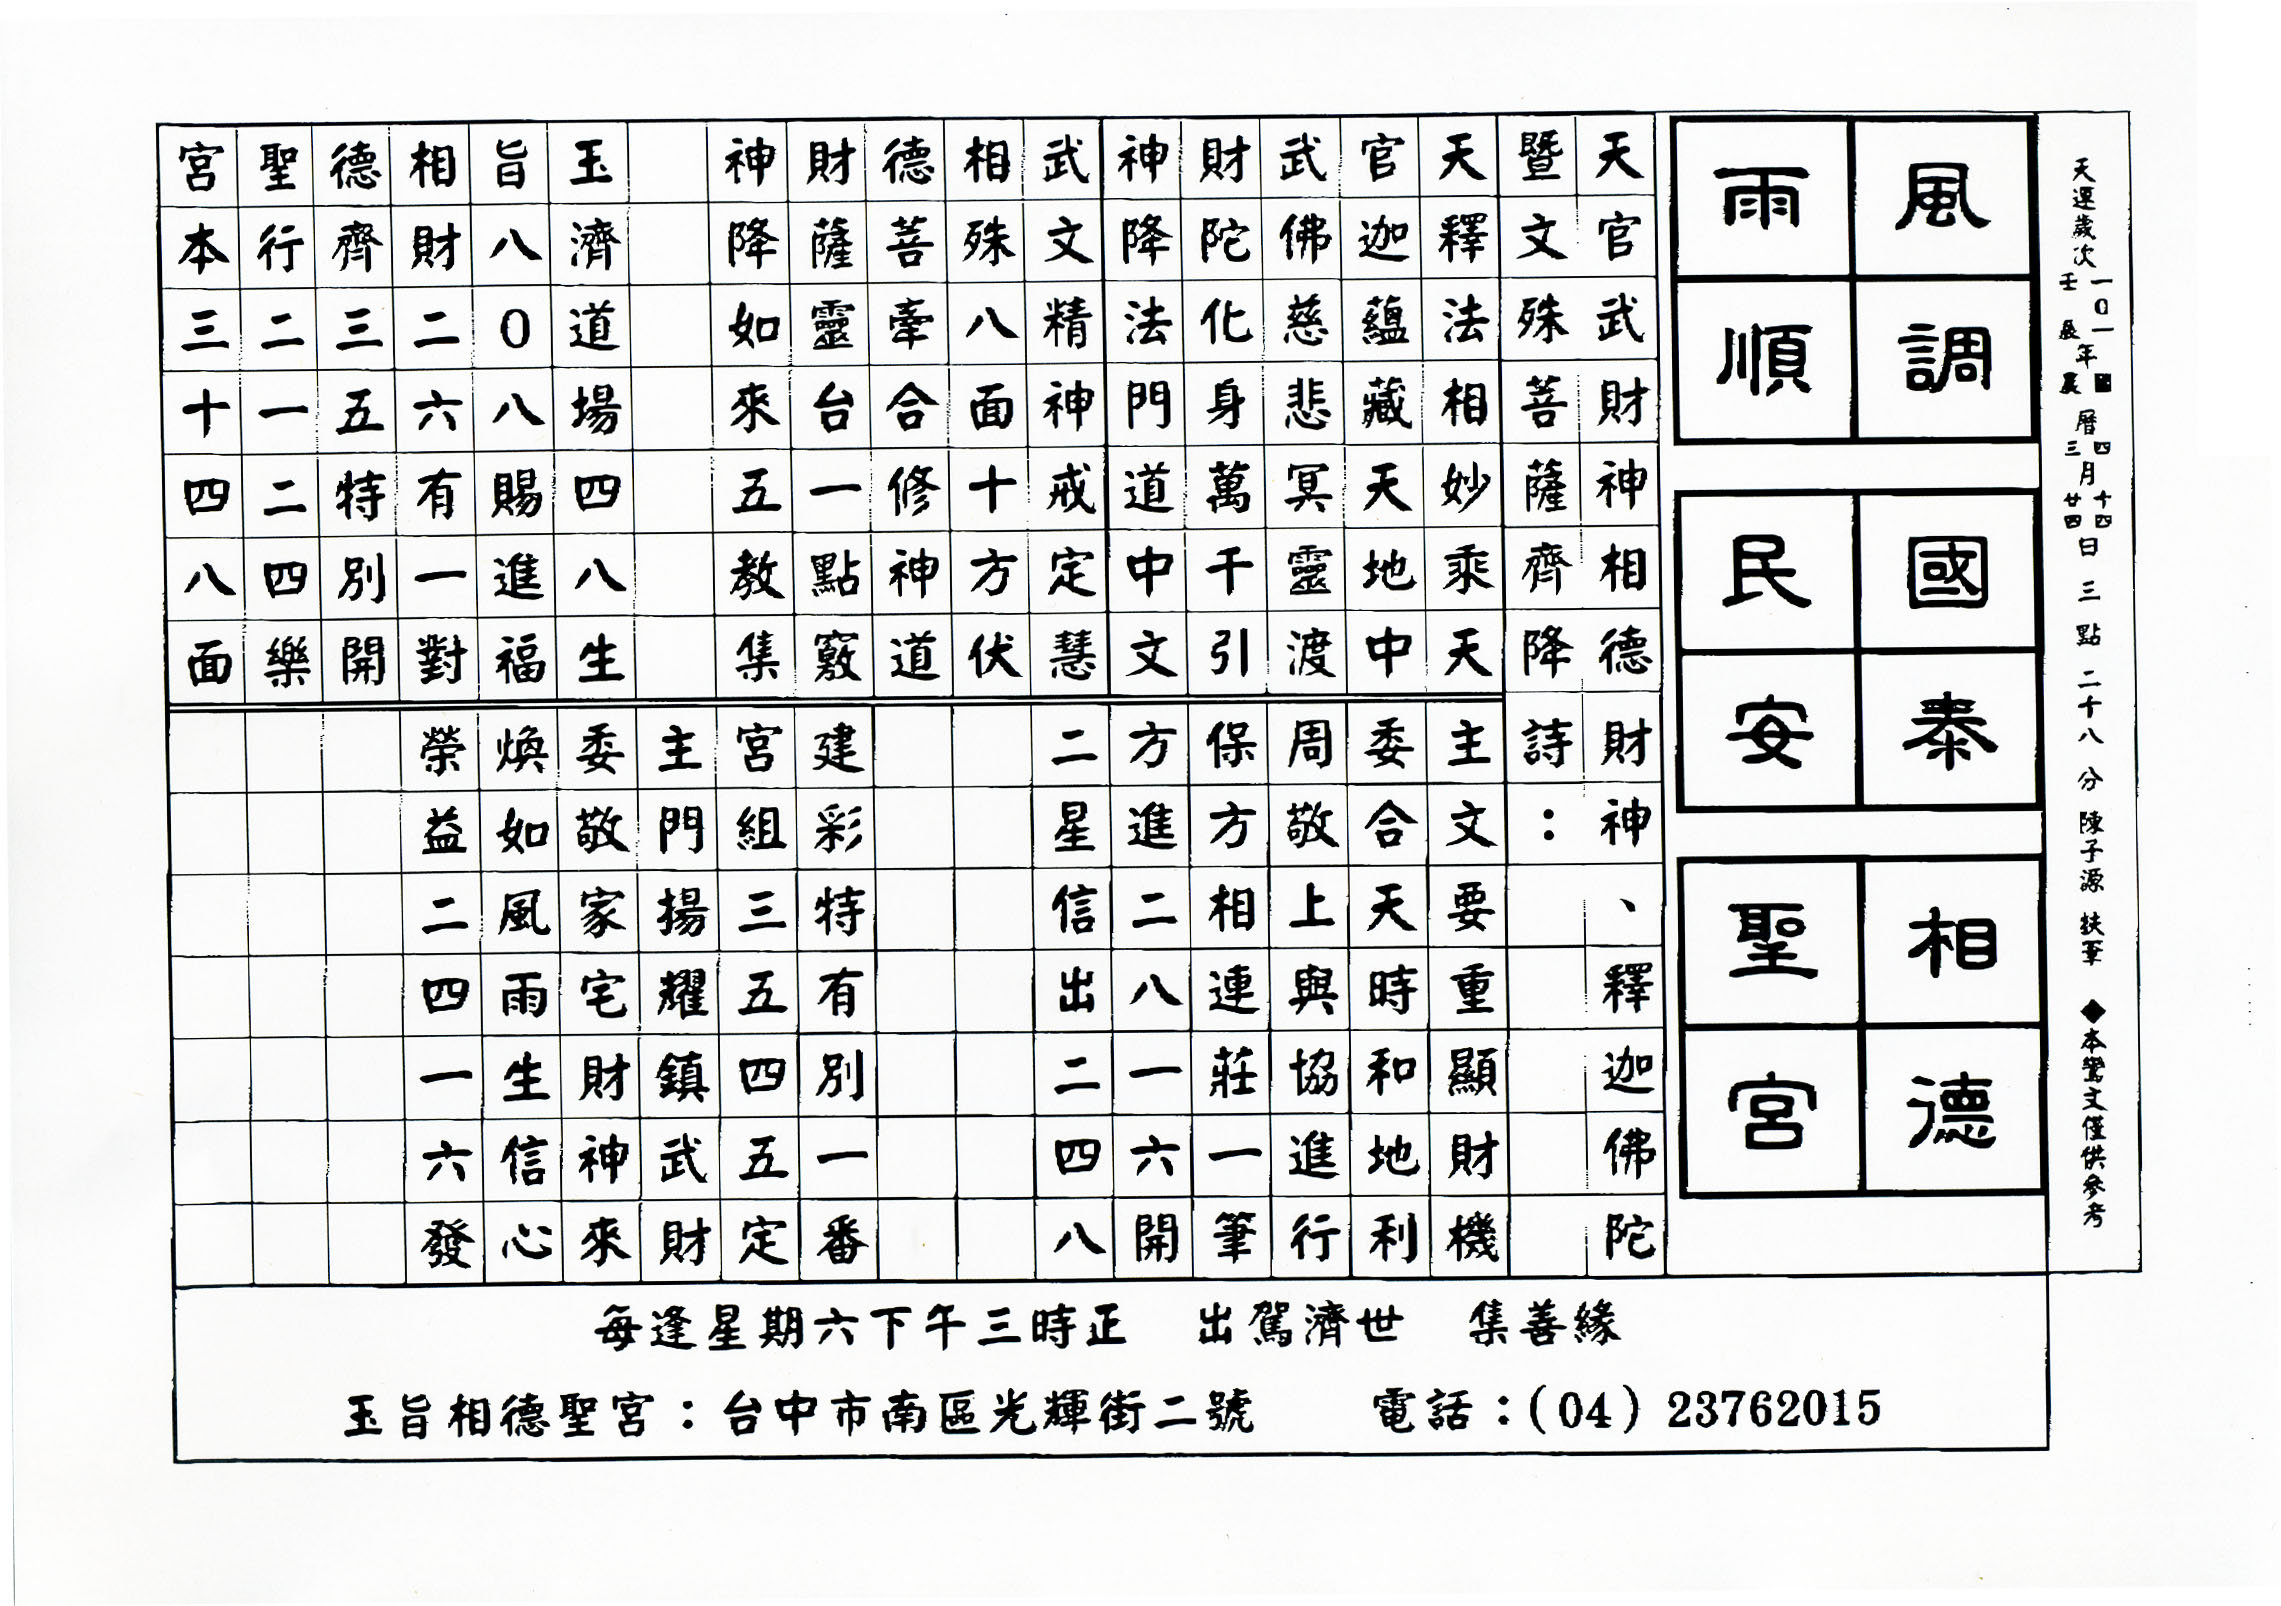 天運歲次
一0一年國曆四月十四日
壬辰年農曆三月廿四日
三點二十八分
陳子源 扶筆
◆本鸞文僅供參考
風調
雨順
國泰
民安
相德
聖宮
天官武財神相德財神、釋迦佛陀
暨文殊菩薩齊降詩:
天釋法相妙乘天
官迦蘊藏天地中
武佛慈悲冥靈渡
財陀化身萬千引
神降法門道中文
武文精神戒定慧
相殊八面十方伏
德菩牽合修神道
財薩靈台一點竅
神降如來五教集
玉濟道場四八生
旨八0八賜進福
相財二六有一對
德齊三五特別開
聖行二一二四樂
宮本三十四八面
主文要重顯財機
委合天時和地利
周敬上與協進行
保方相連莊一筆
方進二八一六開
二星信出二四八
建彩特有別一番
宮組三五四五定
主門揚耀鎮武財
委敬家宅財神來
煥如風雨生信心
榮益二四一六發
每逢星期六下午三時正 出駕濟世 集善緣
玉旨相德聖宮:台中市南區光輝街二號 電話:(04)23762015